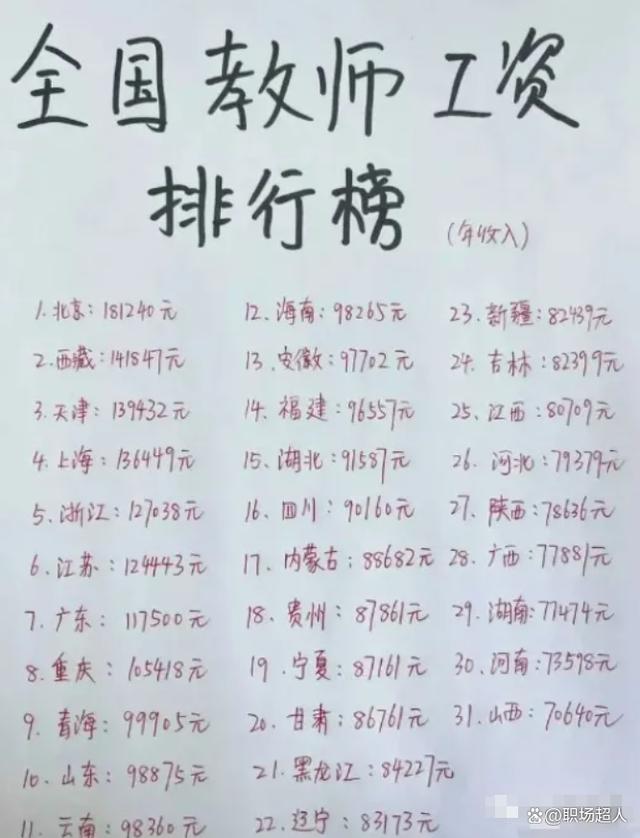 全国教师工资
排行榜(年收入)
1.北京:181240元
2.西藏:141847元
3.天津:139432元
4.上海:136449元
5.浙江:127038元
6.江苏:124443元
7.广东:117500元
8.重庆:105418元
9.青海:99905元
10.山东:98875元
11.云南:98360元
12.海南:98265元
13.安徽:97702元
14.福建:96557元
15.湖北:91587元
16.四川:90160元
17.内蒙古:88682元
18.贵州:87861元
19.宁夏:87161元
20.甘肃:86761元
21.黑龙江:84227元
22.辽宁:83173元
23.新疆:82439元
24.吉林:82399元
25.江西:80709元
26.河北:79379元
27.陕西:78636元
28.广西:77881元
29.湖南:77474元
30.河南:73598元
31.山西:70640元
@职场超人